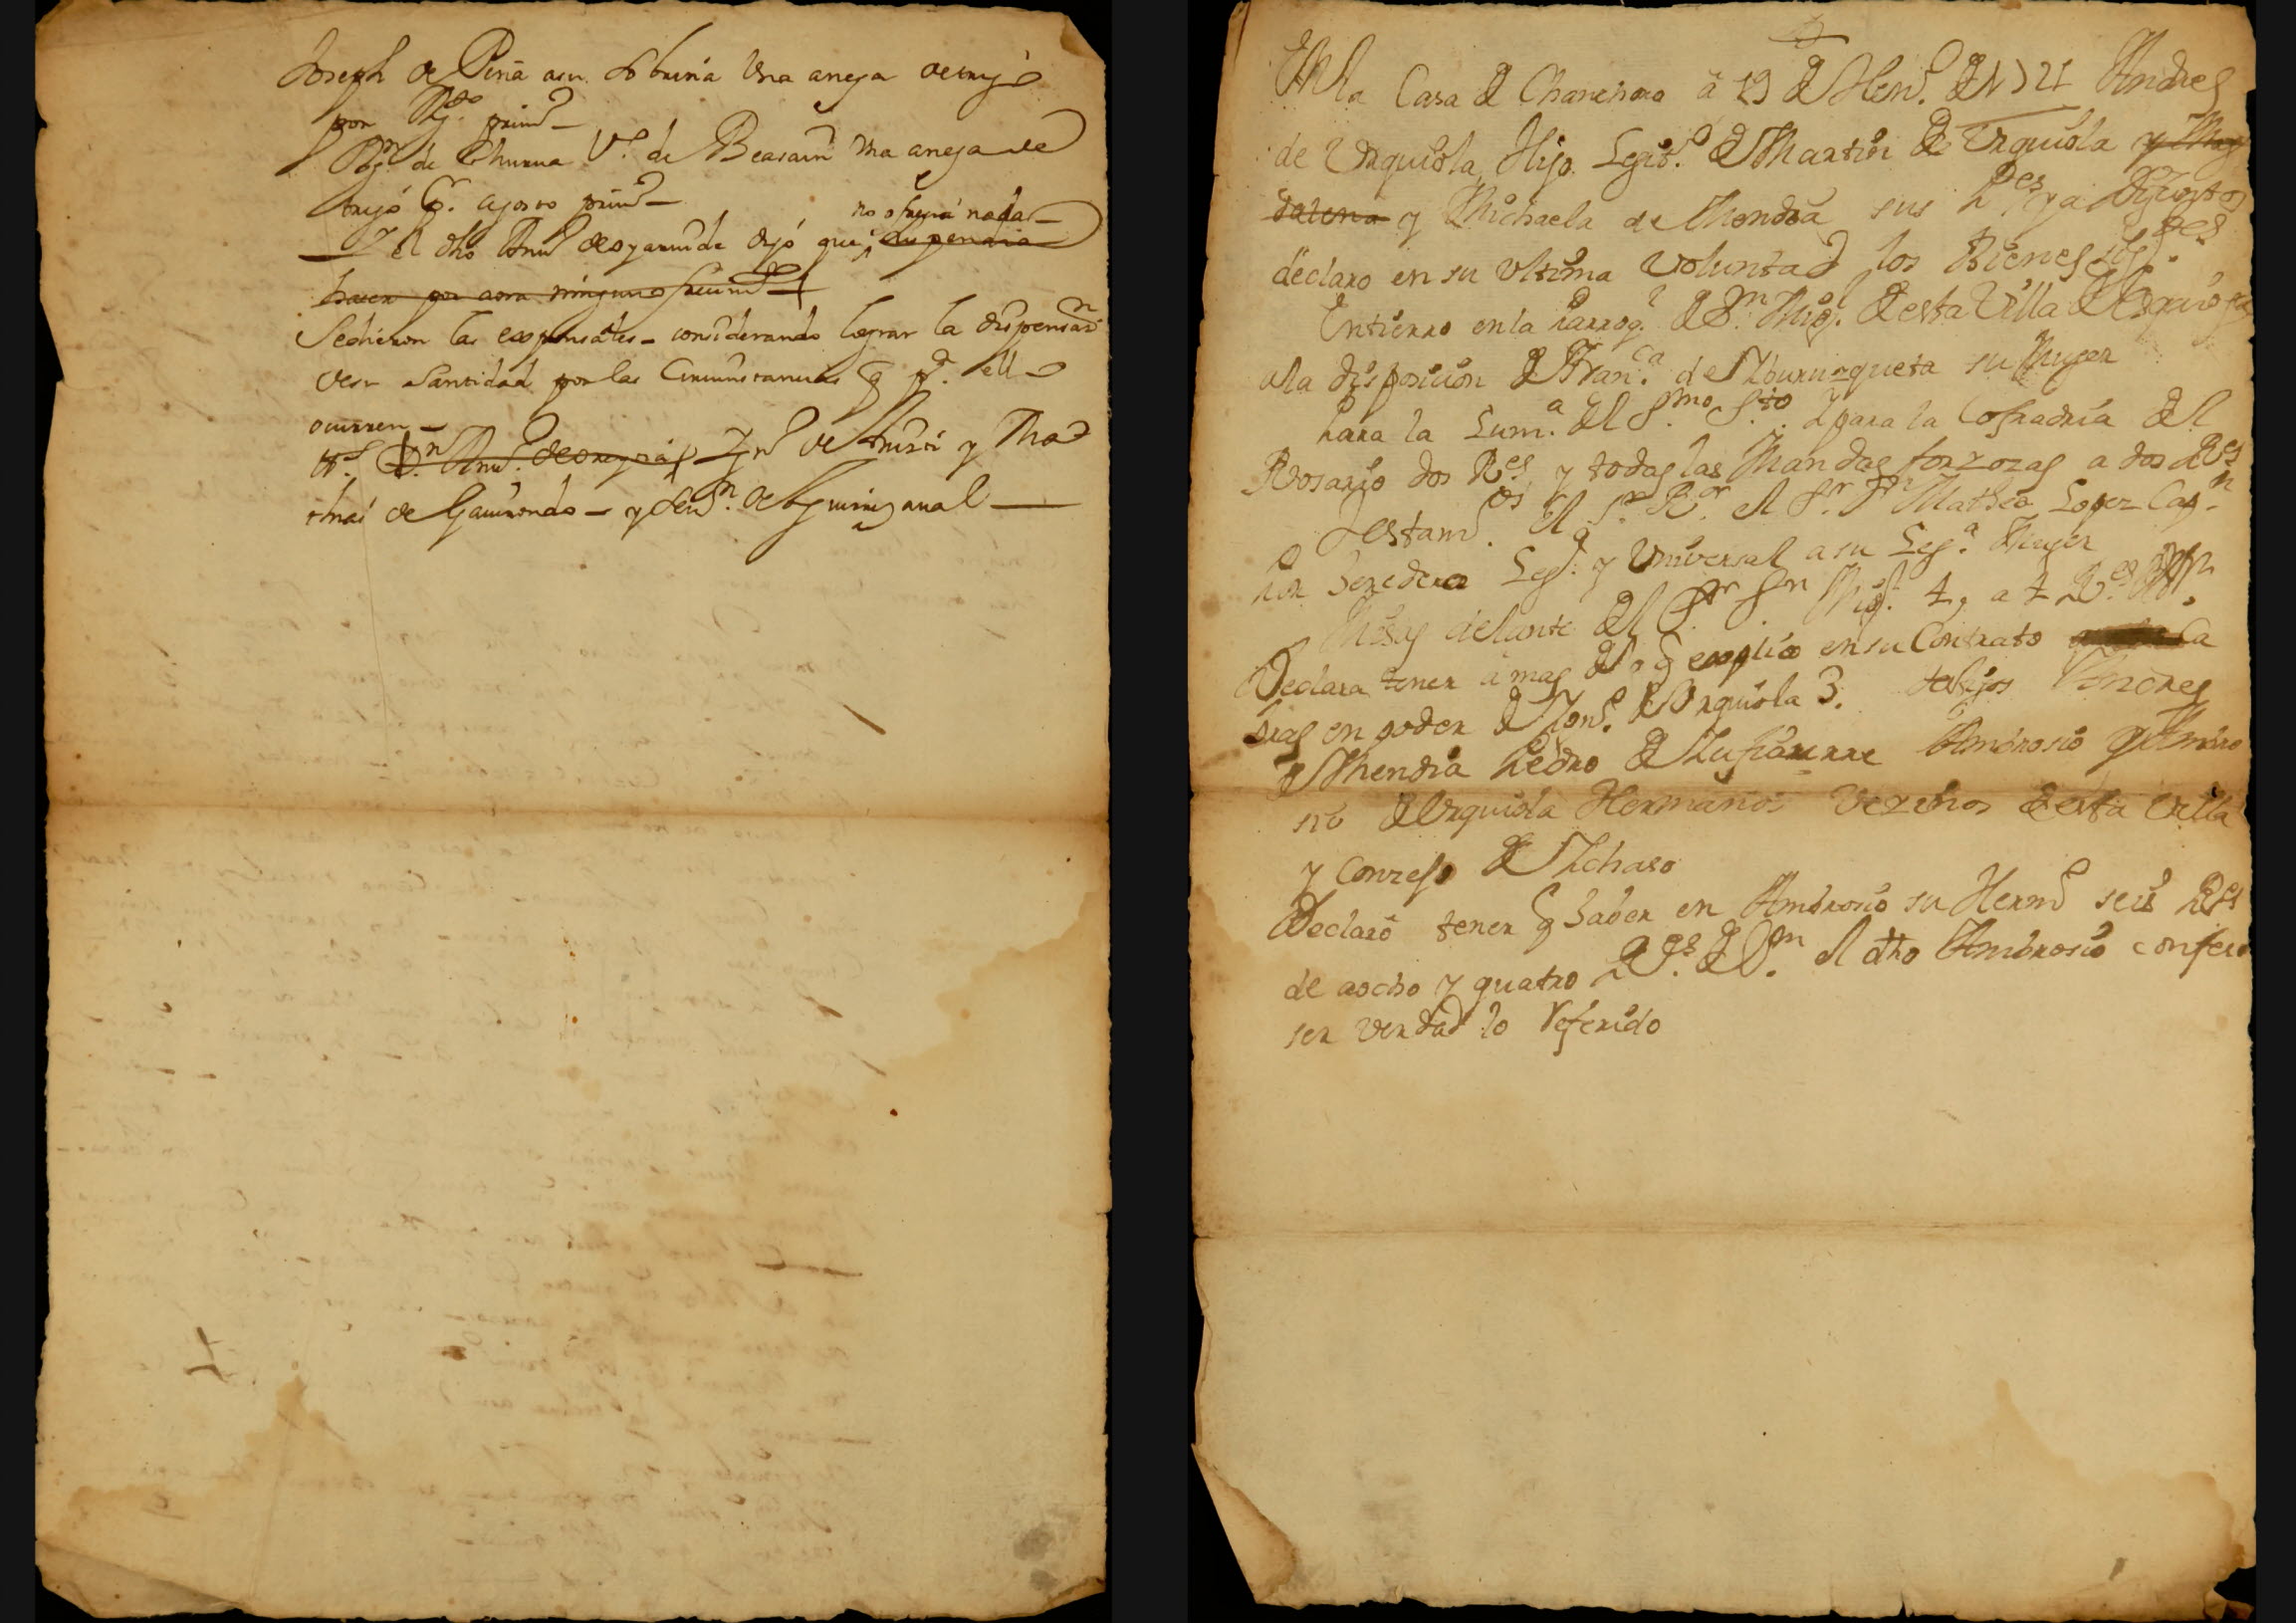 Joseph de Piria asu Sobrina Vna anega de trigo
por Ag.to primo
de Churrua V.o de Beasain Vna anega de
trigo agosto primo
no ofrecia nada
y el dho Ant.o de oyaruide dejó que suspendia
hacer por aora ninguno
Se dieron las expensales considerando lograr la dispensas.n
de su Santidad por las Circunstancias q p.a ello
ocurren
t.s D.n Ant.o de y Tho
mas de Gauirondo y de Aguiriçaual
En la Casa de Chanchoro â 19 de Hen.o de 1721 Andres
de Vrquiola Hijo Legit.o de Martin de Vrquiola y Mag
dalena y Michaela de Mendia sus P.es ya difuntos
declaro en su vltima voluntad los Bienes sig.tes
Entierro en la Parroq.l de S.n Mig.l de esta Villa de Ezquioga
ala disposicion de Fran.ca de Yburusqueta su Muger
Para la Lum.a del S.mo S.to y para la Cofradria del
Rosario dos R.es y todas las Mandas forzozas a dos R.es
Testam.os el S.r R.or el S.r D.n Matheo Lopez Cap.n
por heredera Leg.a y Vniversal a su Leg.a Muger
Misas delante del S.or S.n Mig.l 4, a 4 R.es
Declara tener â mas de lo q explico en su Contrato Ca
bras en poder de de Vrquiola 3. testigos Andres
de Mendia Pedro de Ambrosio y Ambro
sio de Vrquiola Hermanos Vezinos de esta Villa
y Conzejo de Ychaso
Declaró tener q haber en Ambrosio su Herm.o seis R.es
de aocho y quatro R.es de V.on el dho Ambrosio confeso
ser verdad lo referido